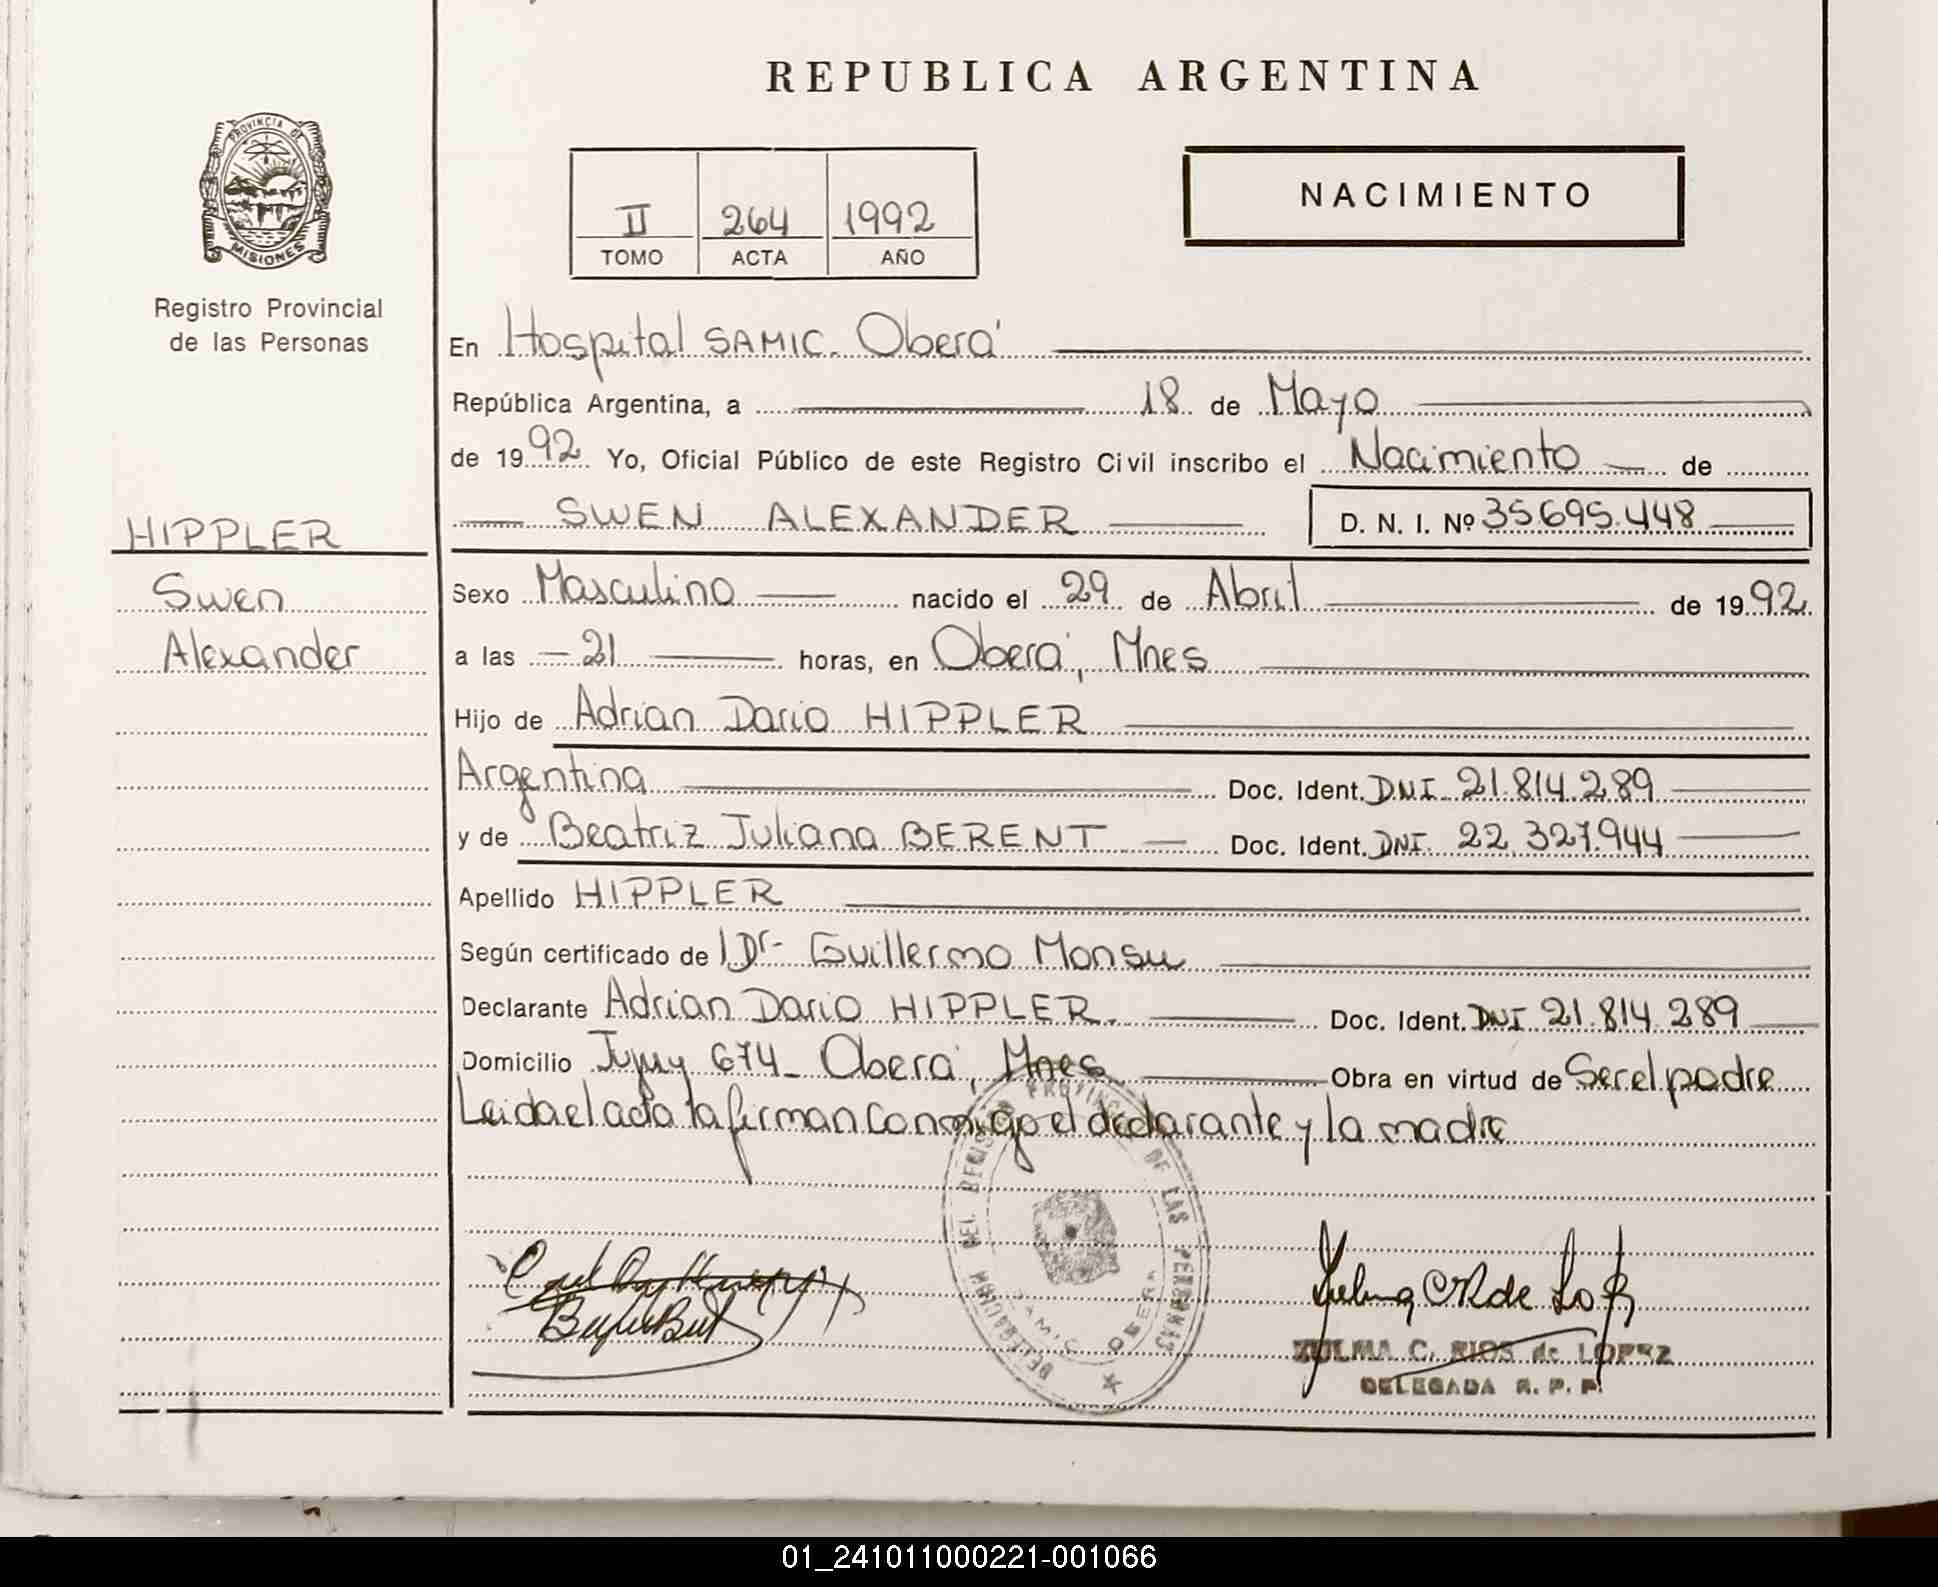 REPUBLICA ARGENTINA
PROVINCIA DE
MISIONES
Registro Provincial
de las Personas
NACIMIENTO
II 264 1992
TOMO ACTA AÑO
En Hospital SAMIC. Oberá
República Argentina, a 18 de Mayo
de 1992 Yo, Oficial Público de este Registro Civil inscribo el Nacimiento de
SWEN ALEXANDER D. N. I. Nº 35695.448
HIPPLER
Swen
Alexander
Sexo Masculino nacido el 29 de Abril de 1992
a las 21 horas, en Oberá, Mnes
Hijo de Adrian Dario HIPPLER
Argentina Doc. Ident. DNI 21.814.289
y de Beatriz Juliana BERENT Doc. Ident. DNI. 22.327.944
Apellido HIPPLER
Según certificado de Dr- Guillermo Monsu
Declarante Adrian Dario HIPPLER. Doc. Ident. DNI 21.814.289
Domicilio Jujuy 674- Oberá, Mnes Obra en virtud de Ser el padre
Leida el acta la firman conmigo el declarante y la madre
DELEGACION DEL REGISTRO PROVINCIAL DE LAS PERSONAS
SAMIC OBERA
ZULMA C. RIOS de LOPEZ
DELEGADA R. P. P.
01_241011000221-001066